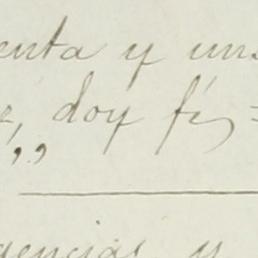 enta y un
, doy fé,=
gencias y